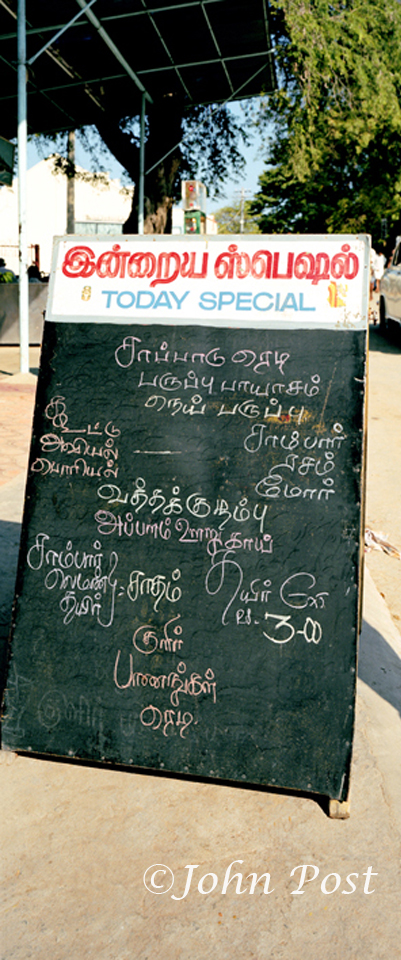 இன்றைய ஸ்பெஷல்
TODAY SPECIAL
சாப்பாடு ரெடி
பருப்பு பாயாசம்
நெய் பருப்பு
கூட்டு
அவியல்
பொரியல்
சாம்பார்
ரசம்
மோர்
வத்தக்குழம்பு
அப்பளம் ஊறுகாய்
சாம்பார்
லெமன் சாதம்
தயிர்
தயிர்
Rs. 3-00
குளிர்
பானங்கள்
ரெடி.
©John Post